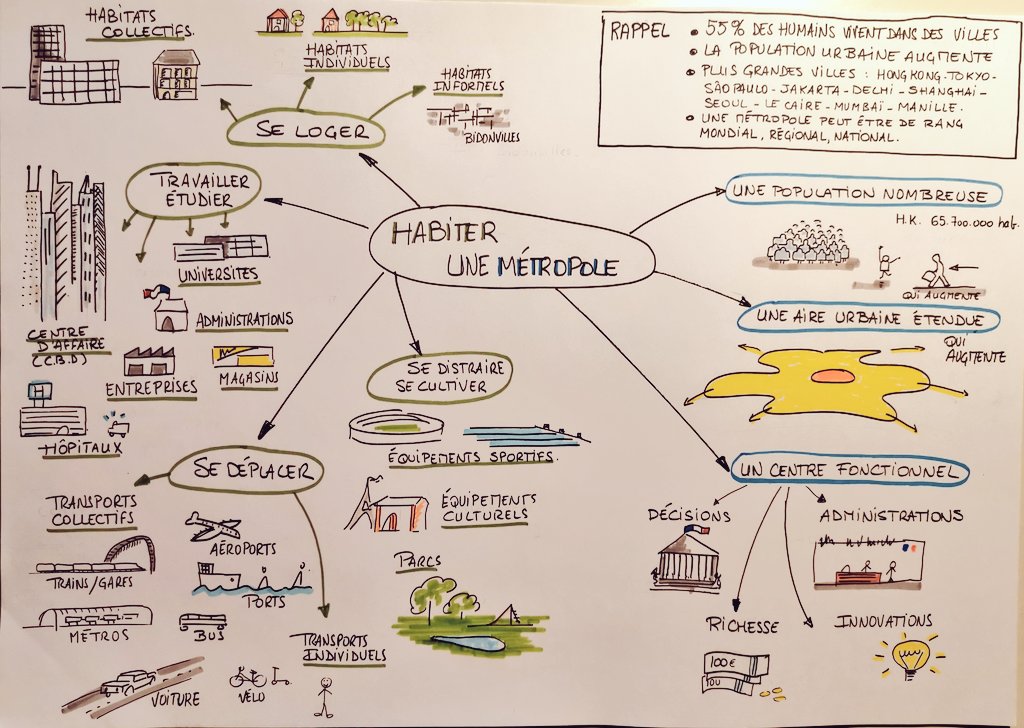 HABITATS
COLLECTIFS.
HABITATS
INDIVIDUELS
HABITATS
INFORMELS
BIDONVILLES
SE LOGER
RAPPEL
• 55% DES HUMAINS VIVENT DANS DES VILLES
• LA POPULATION URBAINE AUGMENTE
• PLUS GRANDES VILLES : HONG KONG-TOKYO-
SÃO PAULO-JAKARTA-DELHI-SHANGHAI-
SEOUL-LE CAIRE-MUMBAI-MANILLE.
• UNE MÉTROPOLE PEUT ÊTRE DE RANG
MONDIAL, RÉGIONAL, NATIONAL.
TRAVAILLER
ÉTUDIER
UNIVERSITES
ADMINISTRATIONS
CENTRE
D'AFFAIRE
(C.B.D)
ENTREPRISES
MAGASINS
H
HÔPITAUX
HABITER
UNE MÉTROPOLE
UNE POPULATION NOMBREUSE
H.K. 65.700.000 hab.
QUI AUGMENTE
UNE AIRE URBAINE ÉTENDUE
QUI
AUGMENTE
SE DISTRAIRE
SE CULTIVER
ÉQUIPEMENTS SPORTIFS.
ÉQUIPEMENTS
CULTURELS
PARCS
SE DÉPLACER
TRANSPORTS
COLLECTIFS
TRAINS/GARES
MÉTROS
AÉROPORTS
PORTS
BUS
TRANSPORTS
INDIVIDUELS
VOITURE
VÉLO
UN CENTRE FONCTIONNEL
DÉCISIONS
ADMINISTRATIONS
RICHESSE
100€
INNOVATIONS